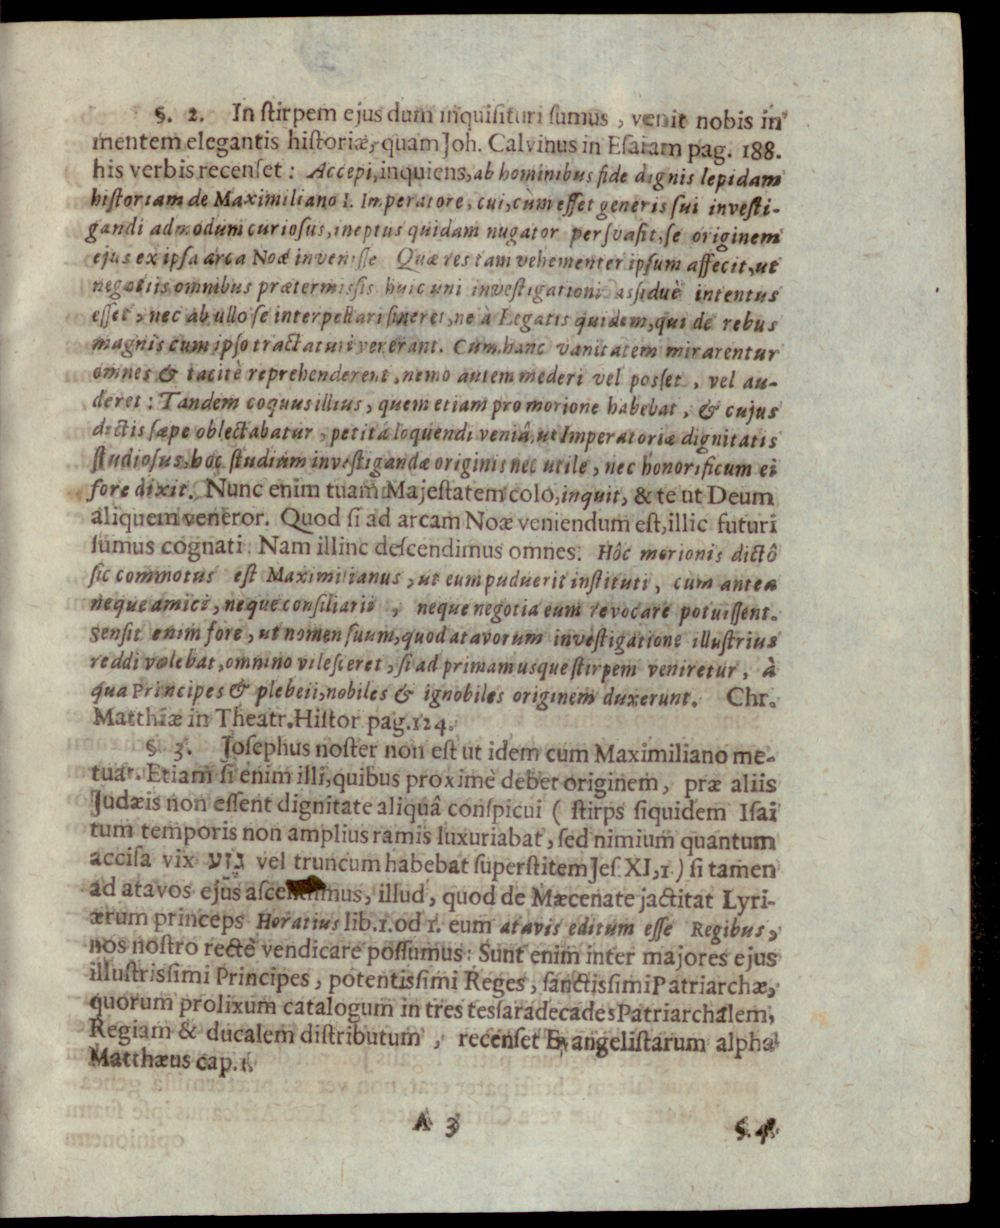 §. 2. In ſtirpem ejus dum inquiſituri ſumus, venit nobis in
mentem elegantis hiſtoriæ, quam Joh. Calvinus in Eſaiam pag. 188.
his verbis recenſet: Accepi, inquiens, ab hominibus fide dignis lepidam
hiſtoriam de Maximiliano I. Imperatore, cui, cùm eſſet generis ſui inveſti-
gandi admodum curioſus, ineptus quidam nugator perſvaſit, ſe originem
ejus ex ipſa arca Noæ inveniſſe Quæ res tam vehementer ipſum affecit, ut
negotiis omnibus prætermiſsis huic uni inveſtigationi aſsiduè intentus
eſſet, nec ab ullo ſe interpellari ſineret, ne à Legatis quidem, qui de rebus
magnis cum ipſo tractaturi venerant. Cum hanc vanitatem mirarentur
omnes & tacitè reprehenderent, nemo autem mederi vel poſſet, vel au-
deret: Tandem coquus illius, quem etiam pro morione habebat, & cujus
dictis ſæpe oblectabatur, petitâ loquendi veniâ, ut Imperatoriæ dignitatis
ſtudioſus, hoc ſtudium inveſtigandæ originis nec utile, nec honorificum ei
fore dixit. Nunc enim tuam Majeſtatem colo, inquit, & te ut Deum
aliquem veneror. Quod ſi ad arcam Noæ veniendum eſt, illic futuri
ſumus cognati. Nam illinc deſcendimus omnes. Hôc morionis dictô
ſic commotus eſt Maximilianus, ut eum puduerit inſtituti, cum antea
neque amici, neque conſiliarii, neque negotia eum revocare potuiſſent.
Senſit enim fore, ut nomen ſuum, quod atavorum inveſtigatione illuſtrius
reddi volebat, omnino vileſceret, ſi ad primam usque ſtirpem veniretur, à
qua Principes & plebeii, nobiles & ignobiles originem duxerunt. Chr.
Matthiæ in Theatr. Hiſtor pag. 124.
§ 3. Joſephus noſter non eſt ut idem cum Maximiliano me-
tuat. Etiam ſi enim illi, quibus proximè debet originem, præ aliis
Judæis non eſſent dignitate aliquâ conſpicui ( ſtirps ſiquidem Iſai
tum temporis non amplius ramis luxuriabat, ſed nimium quantum
acciſa vix גזע vel truncum habebat ſuperſtitem Jeſ XI, 1.) ſi tamen
ad atavos ejus aſcendimus, illud, quod de Mæcenate jactitat Lyri-
ærum princeps Horatius lib. 1. od 1. eum atavis editum eſſe Regibus,
nos noſtro rectè vendicare poſſumus: Sunt enim inter majores ejus
illuſtriſſimi Principes, potentiſſimi Reges, ſanctiſſimi Patriarchæ,
quorum prolixum catalogum in tres teſſaradecades Patriarchalem,
Regiam & ducalem diſtributum, recenſet Evangeliſtarum alpha
Matthæus cap. 1.
A 3 §. 4.